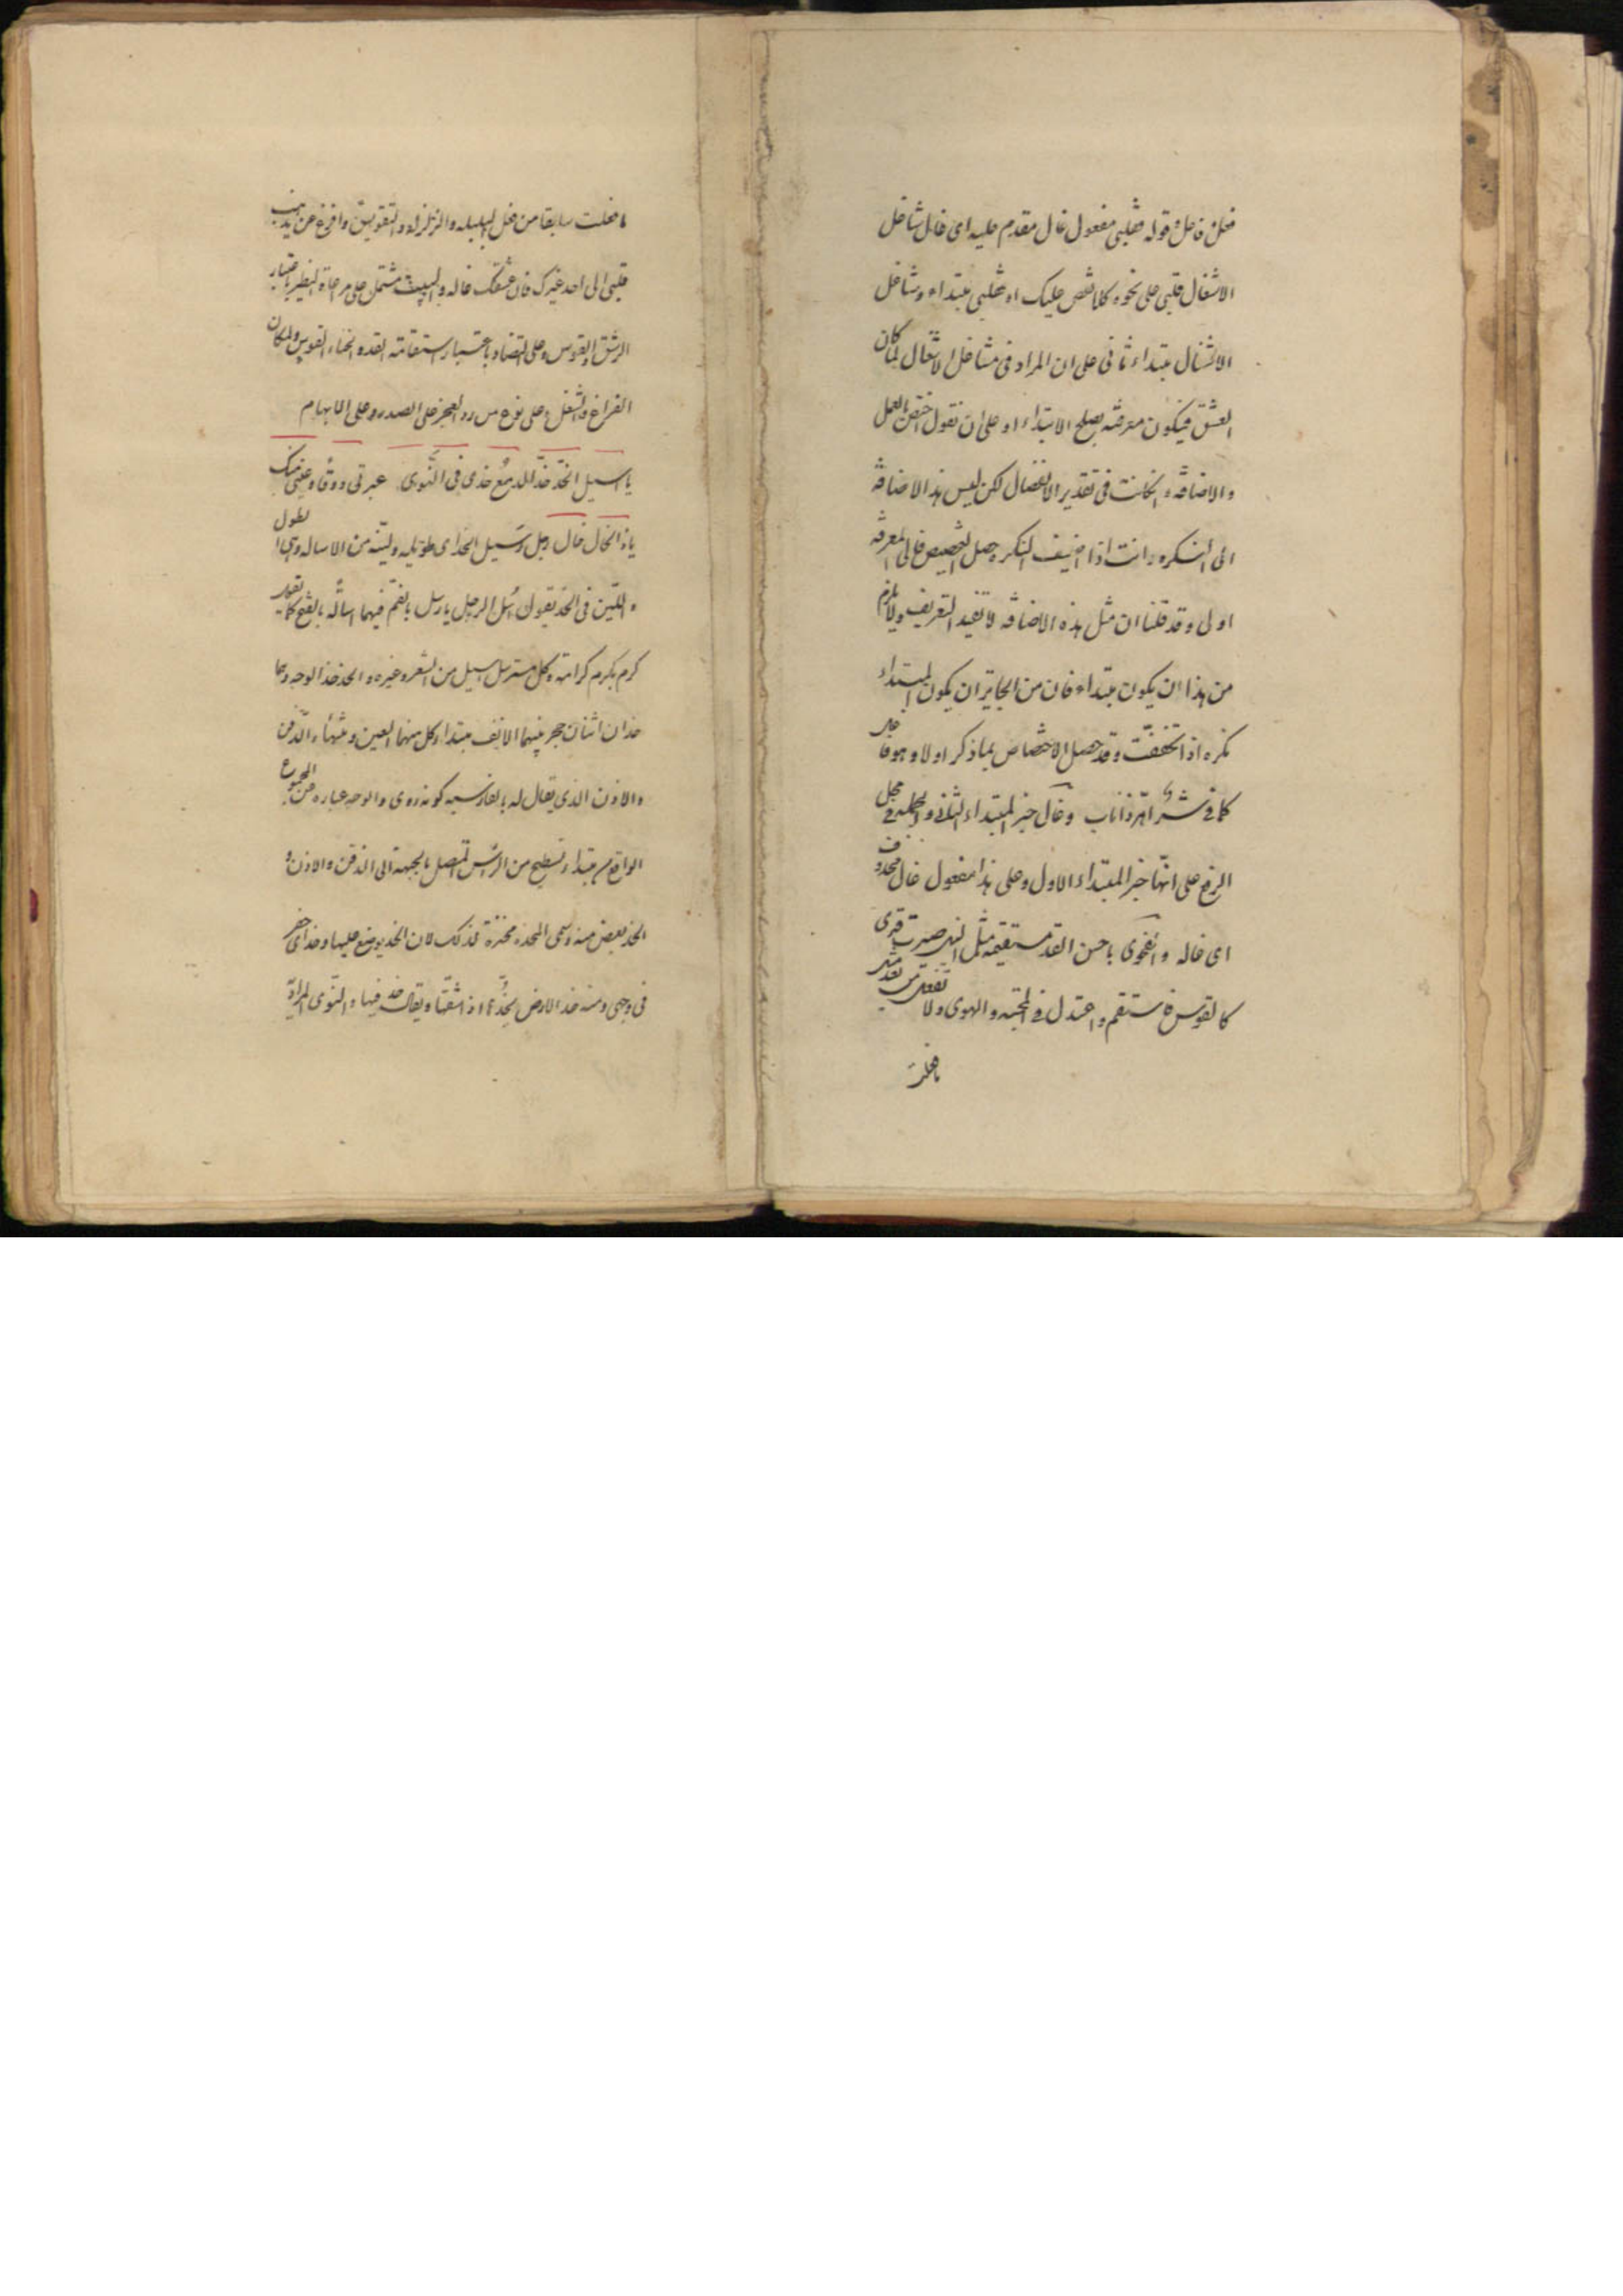 فعل فاعل وقوله فقلبی مفعول غال مقدم علیه ای غال شاغل
الاشغال قلبی علی نحوه کلا نقص علیک او فقلبی مبتداء وشاغل
الاشغال مبتداء ثانی علی ان المراد فی مشاغل الاشغال لما کان
العشق فیکون معرفته یصلح الابتداء او علی ان نقول اختص بالعمل
والاضافة وانکانت فی تقدیر الانفصال لکن لیس هذا الاضافة
الی النکره وانت اذا اضیف النکره حصل التخصیص فالی المعرفة
اولی وقد قلنا ان مثل هذه الاضافه لا تفید التعریف ولا یلزم
من هذا ان یکون مبتداء فان من الجایز ان یکون المبتداء
نکره اذا تخصصت وقد حصل الاختصاص بما ذکر اولا وهو
کما فی شر اهر ذا ناب وغال خبر المبتداء الثانی والجمله فی محل
الرفع علی انها خبر المبتداء الاول وعلی هذا مفعول غال محذوف
ای غاله یا حسن القد مستقیمه مثل صیرت قدی
کالقوس فاستقم واعتدل فی المحبة والهوی ولا تفعل من بعد مثل
ما فعلت
ما فعلت سابقا من فعل البلبله والزلزله والتقویس وافرغ عن یذهب
قلبی الی احد غیرک فان عشقک غاله والبیت مشتمل علی مراعاة النظیر باعتبار
الرشق والقوس وعلی التضاد باعتبار استقامته القد وانحناء القوس ولمکان
الفراغ والشغل وعلی نوع من رد العجز علی الصدر وعلی الابهام
یا اسیل الخد خد الدمع خدی فی النوی عبرتی ودق وعینی منک
یا ذا الخال خال رجل اسیل الخد ای طویله ولینه من الاساله وهی الطول
واللین فی الخد یقول اسل الرجل یارسل بالضم فیهما اسالة بالفتح کما تقول
کرم یکرم کرامة وکل مسترسل اسیل من الشعر وغیره والخد خد الوجه وهما
خدان اثنان حجر بینهما الانف مبتداء کل منهما العین ومنتهاء الذقن
والاذن الذی یقال له بالفارسیه کونه روی والوجه عباره عن المجموع
الواقع من مبتداء تسطیح من الراس المتصل بالجبهة الی الذقن والاذن و
الخد بعض منه وسمی المخده مخدة لذلک لان الخد یوضع علیها وخد ای حفر
فی وجهی ومنه خد الارض یخدها اذا شقها ویقال خد فیها والنوی المراد